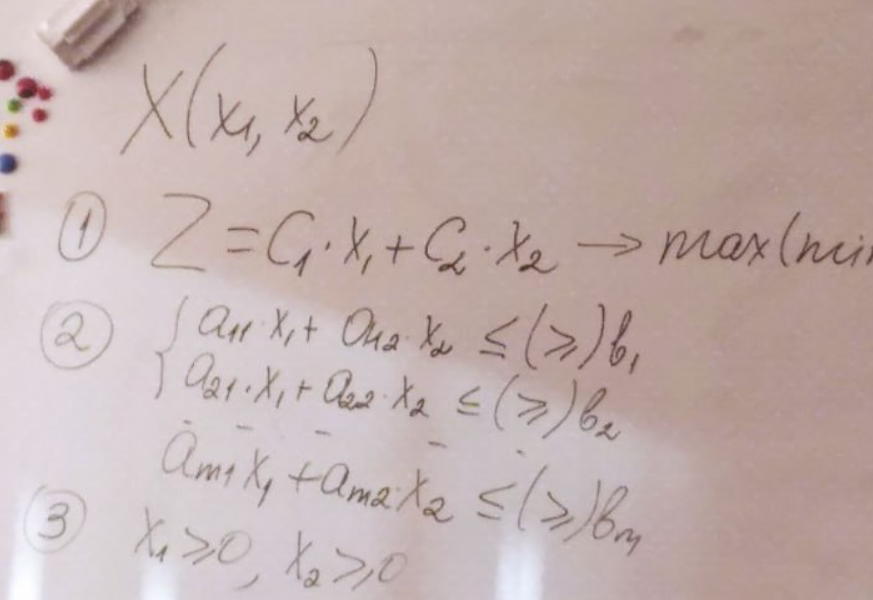 X(x₁, x₂)
① Z = C₁·x₁ + C₂·x₂ → max(min
② { a₁₁·x₁ + a₁₂·x₂ ≤ (≥) b₁
a₂₁·x₁ + a₂₂·x₂ ≤ (≥) b₂
- - - - -
aₘ₁x₁ + aₘ₂·x₂ ≤ (≥) bₘ
③ x₁ ≥ 0, x₂ ≥ 0